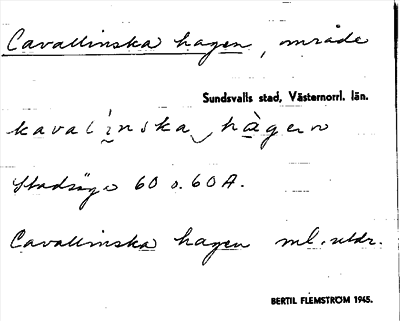 Cavallinska hagen, område
Sundsvalls stad, Västernorrl. län.
kavalinska hàgen
Stadsäga 60 o. 60A.
Cavallinska hagen ml. utdr.
BERTIL FLEMSTRÖM 1945.